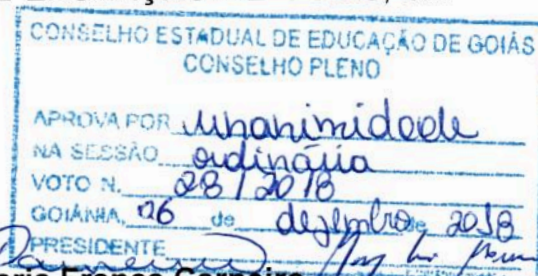 CONSELHO ESTADUAL DE EDUCAÇÃO DE GOIÁS
CONSELHO PLENO
APROVA POR unanimidade
NA SESSÃO ordinária
VOTO N. 28 / 2018
GOIÂNIA, 06 de dezembro de 2018
PRESIDENTE
aria Franco Carneiro